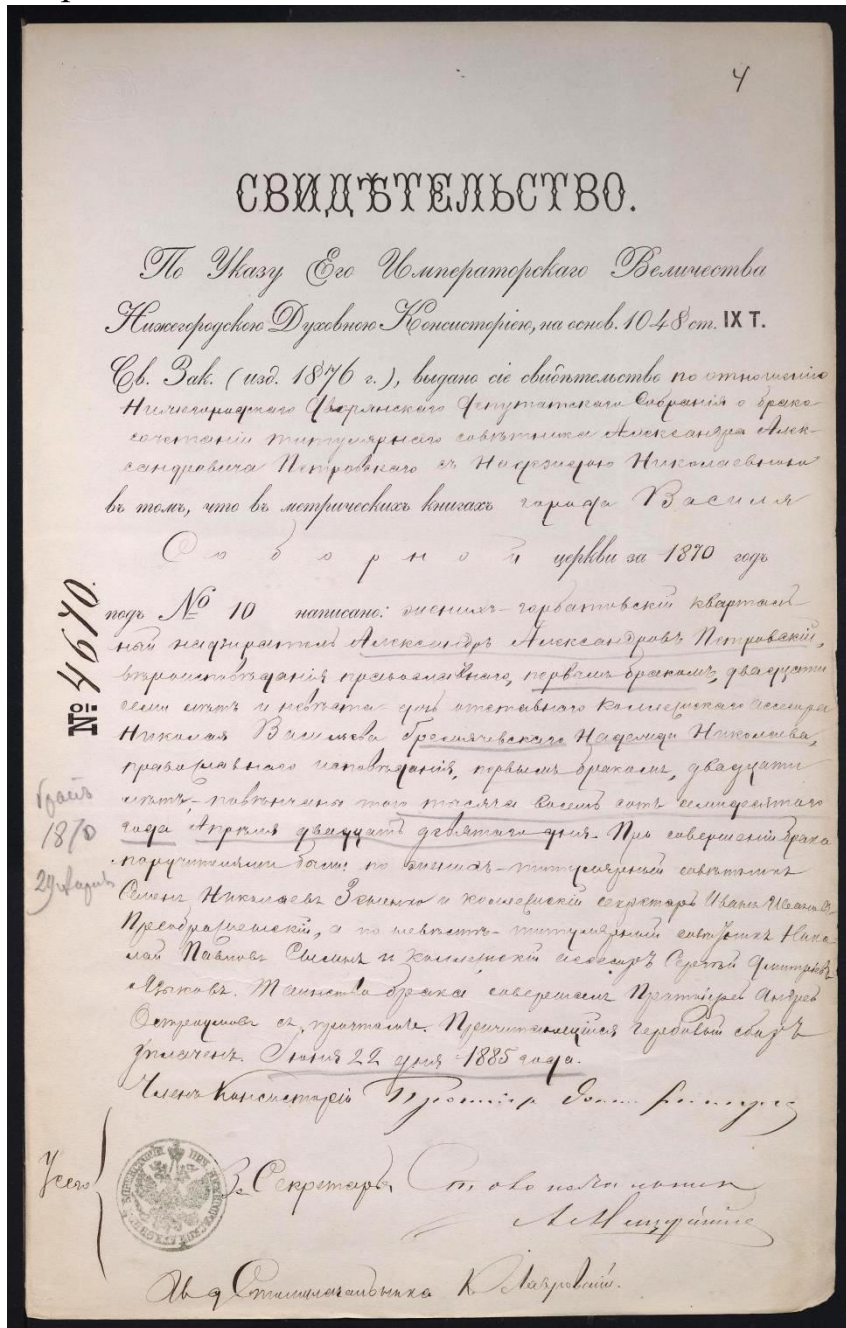 4
СВИДѢТЕЛЬСТВО.
По Указу Его Императорскаго Величества
Нижегородскою Духовною Консисторіею, на основ. 1048 ст. IX Т.
Св. Зак. (изд. 1876 г.), выдано сіе свидѣтельство по отношенію
Нижегородскаго Дворянскаго Депутатскаго Собранія о брако-
сочетаніи титулярнаго совѣтника Александра Алек-
сандровича Петровскаго съ Надеждою Николаевною
въ томъ, что въ метрическихъ книгахъ города Василя
Соборной церкви за 1870 годъ
подъ № 10 написано: женихъ - горбатовскій кварталь-
ный надзиратель Александръ Александровъ Петровскій,
вѣроисповѣданія православнаго, первымъ бракомъ, двадцати
семи лѣтъ и невѣста - дочь отставнаго Коллежскаго Ассесора
Николая Васильева Надежда Николаева,
православнаго исповѣданія, первымъ бракомъ, двадцати
лѣтъ, - повѣнчаны тысяча восемь сотъ семидесятаго
года Апрѣля двадцать девятаго дня. При совершеніи брака
поручителями были: по женихѣ - титулярный совѣтникъ
Семенъ Николаевъ и коллежскій секретарь Иванъ Ивановъ
Преображенскій, а по невѣстѣ - титулярный совѣтникъ Нико-
лай Павловъ и коллежскій ассесоръ Сергѣй Дмитріевъ
Языковъ. Таинство брака совершалъ Протоіерей Андрей
Остроумовъ съ причтомъ. Причитающійся гербовый сборъ
уплаченъ. Іюня 22 дня 1885 года.
Членъ Консисторіи
№ 4670.
1870
29 Апрѣля
За Секретаря Столоначальникъ
И. д. Столоначальника К. Лавровскій.